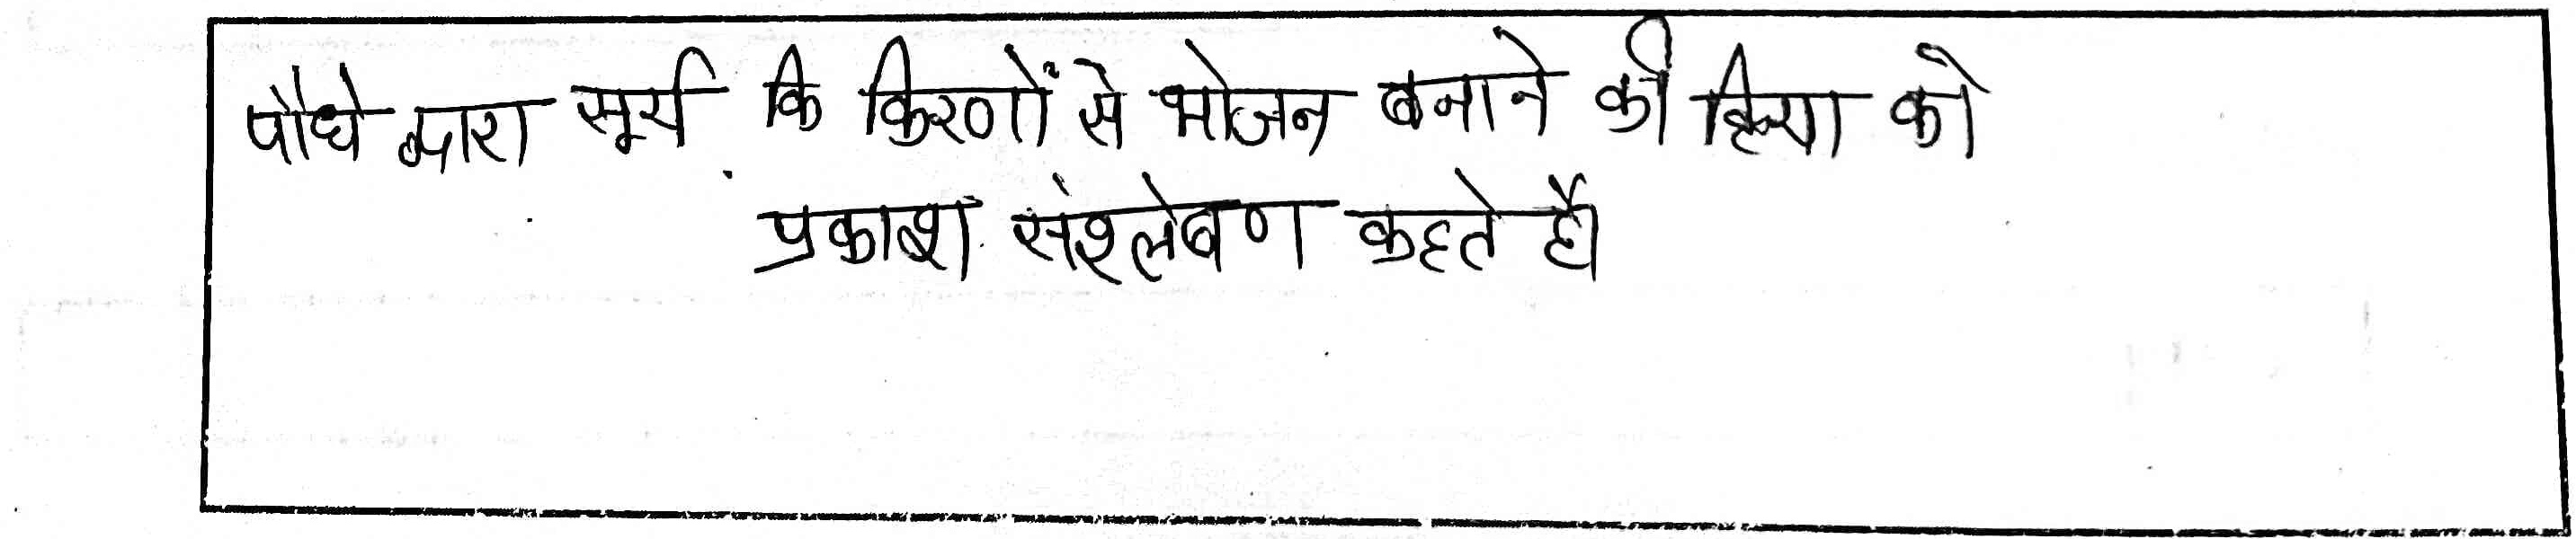 पौधे द्वारा सूर्य कि किरणों से भोजन बनाने की क्रिया को
प्रकाश संश्लेषण कहते है।